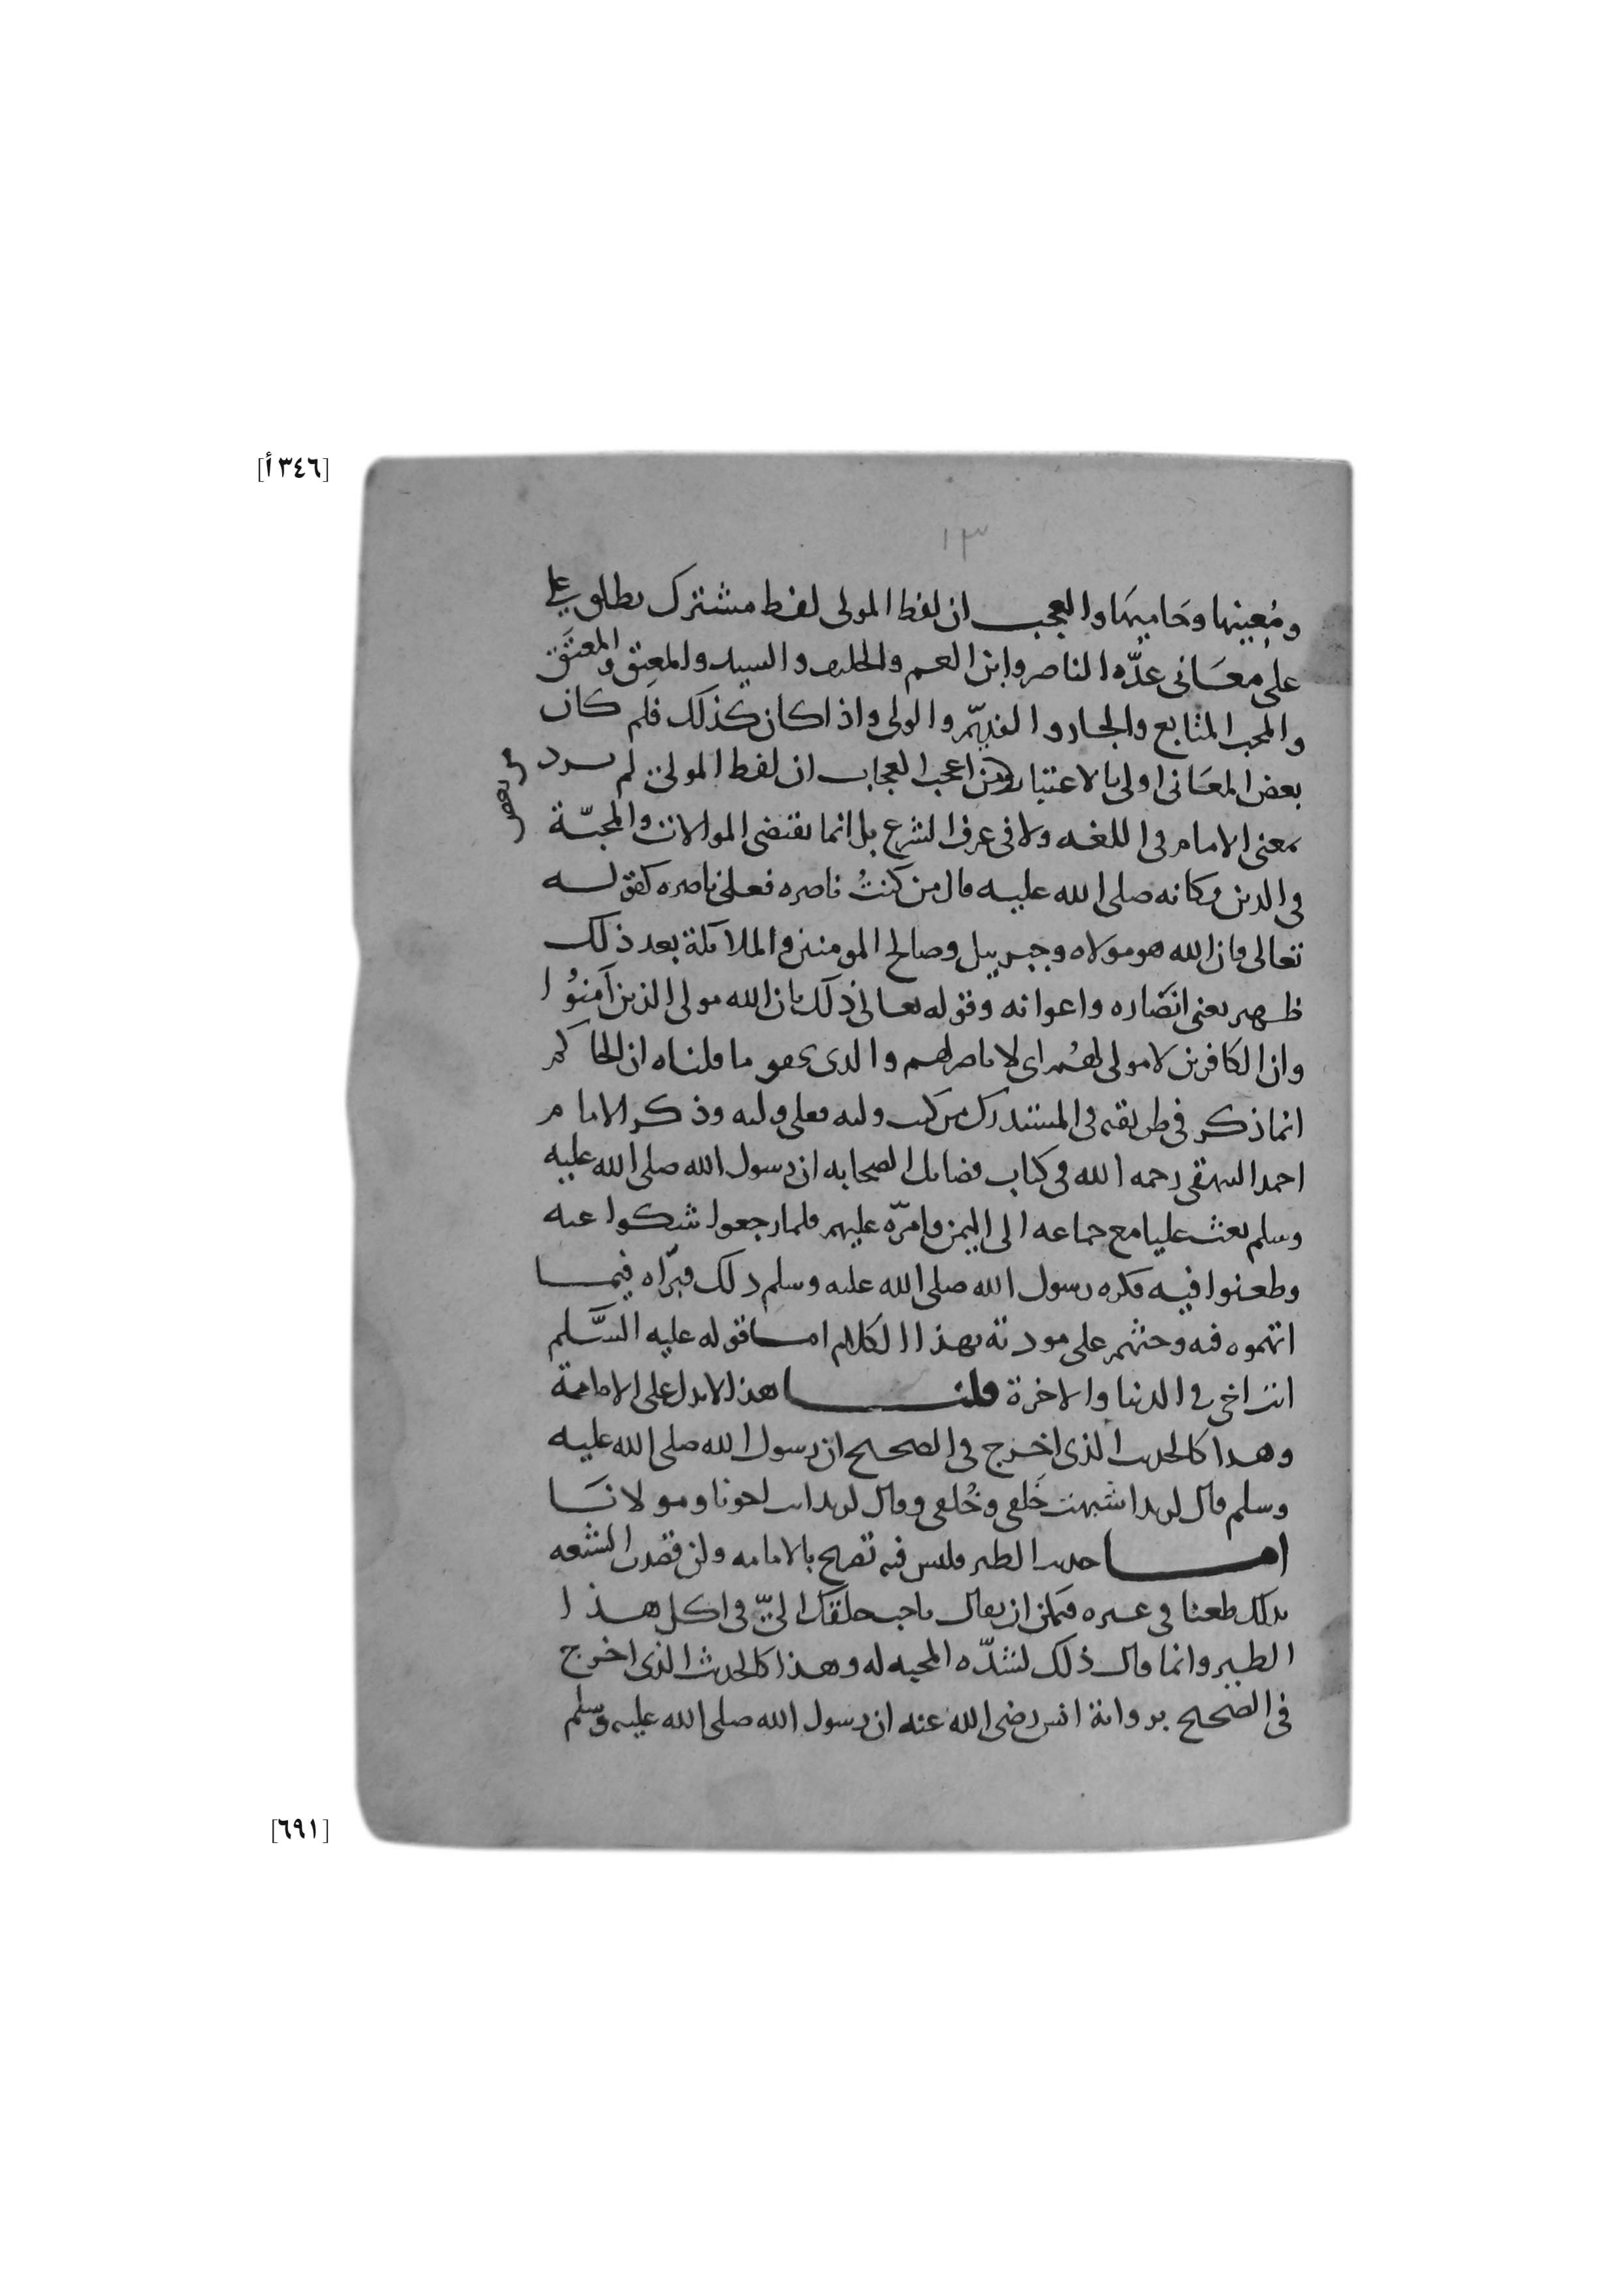 [٣٤٦ أ]
١٣
ومُعينها وحَاميهَا والعجب ان لفظ المولى لفظ مشترك يطلق على
على معَانى عدّه الناصر وابن العم والحليف والسيد والمعتِق والمعتَق
والمحب المتابع والجار والقيّم والولى واذا كان كذلك فلم كان
بعض المعَانى اولى بالاعتبار ومن اعجب العجاب ان لفظ المولى لم يرد
من بعض
بمعنى الامام فى اللغه ولا فى عرف الشرع بل انما يقتضى الموالات والمحبّة
فى الدين وكانه صلى الله عليه قال من كنتُ ناصره فعلى ناصره كقوله
تعالى فان الله هو مولاه وجبرييل وصالح المومنين والملائكة بعد ذلك
ظهير يعنى انصَاره واعوانه وقوله تعالى ذلك بان الله مولى الذين آمنُوا
وان الكافرين لا مولى لهُم اى لا ناصر لهم والذى يحقق ما قلناه ان الحاكم
انما ذكر فى طريقته فى المستدرك من كنت وليه فعلى وليه وذكر الامام
احمد البيهقى رحمه الله فى كتاب فضائل الصحابه ان رسول الله صلى الله عليه
وسلم بعث عليا مع جماعه الى اليمن وامرّه عليهم فلما رجعوا شكوا عنه
وطعنوا فيه فكره رسول الله صلى الله عليه وسلم ذلك فبرّاه فيما
اتهموه فيه وحثهم على مودته بهذا الكلام اما قوله عليه السَّلم
انت اخى فى الدنيا والاخرة قلنا هذا لا يدل على الامامة
وهذا كالحديث الذى اخرج فى الصحيح ان رسول الله صلى الله عليه
وسلم قال لزيد اشبهت خَلقى وخُلقى وقال لزيد انت اخونا ومولانَا
اما حديث الطير فليس فيه تصريح بالامامه ولئن قصدت الشيعه
بذلك طعنا فى غيره فيمكن ان يقال باحب خلقك الىّ فى اكل هذا
الطير وانما قال ذلك لشدّه المحبه له وهذا كالحديث الذى اخرج
فى الصحيح برواية انس رضى الله عنه ان رسول الله صلى الله عليه وسلم
[٦٩١]